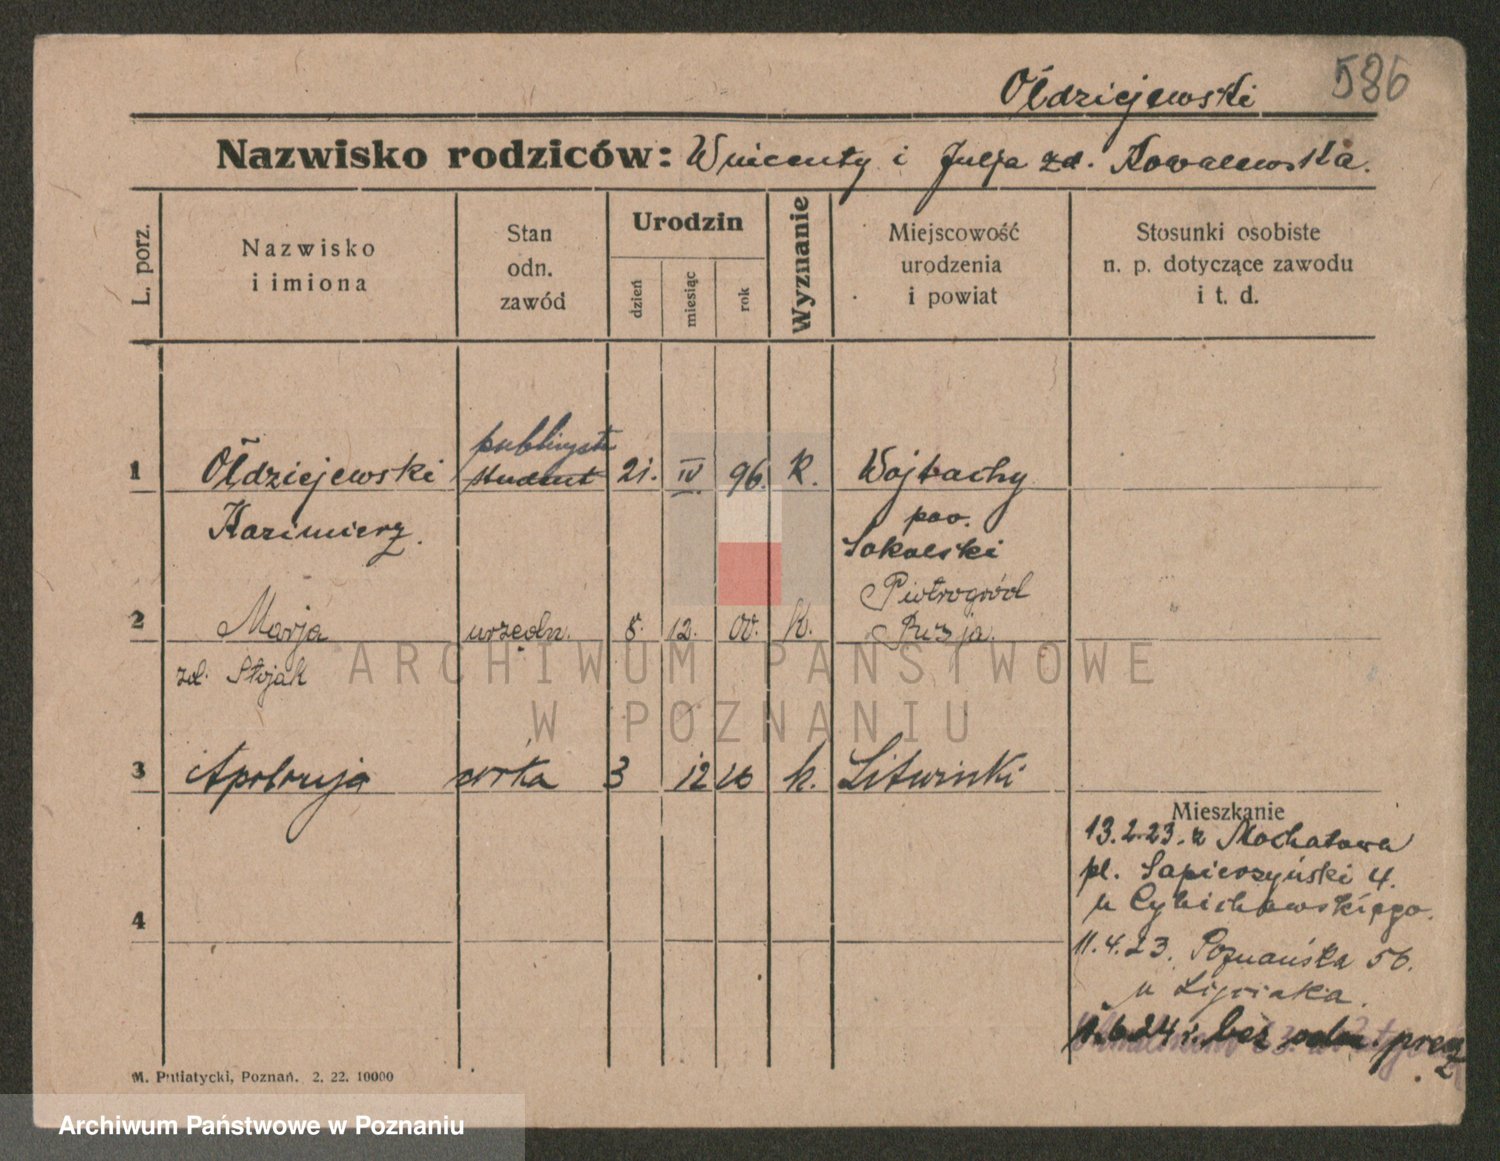 Ołdziejewski 586
Nazwisko rodziców: Wincenty i Julja zd. Kowalewska.
L. porz.
Nazwisko
i imiona
Stan
odn.
zawód
Urodzin
dzień
miesiąc
rok
Wyznanie
Miejscowość
urodzenia
i powiat
Stosunki osobiste
n. p. dotyczące zawodu
i t. d.
publicysta
1 Ołdziejewski student 21. IV 96. k. Wojtachy
Kazimierz. pow.
Sokolski
Piotrogród
2 Marja urzędn. 8. 12. 00. k. Rusja.
zd. Stojak
ARCHIWUM PAŃSTWOWE
W POZNANIU
3 córka 3 12 k. Litwinki
Mieszkanie
13.2.23. z
pl. Sapieżyński 4.
u Cybichowskiego.
4
11.4.23. Poznańska 56.
u
6 24 r. bez odm. precz
M. Putiatycki, Poznań. 2. 22. 10000
Archiwum Państwowe w Poznaniu